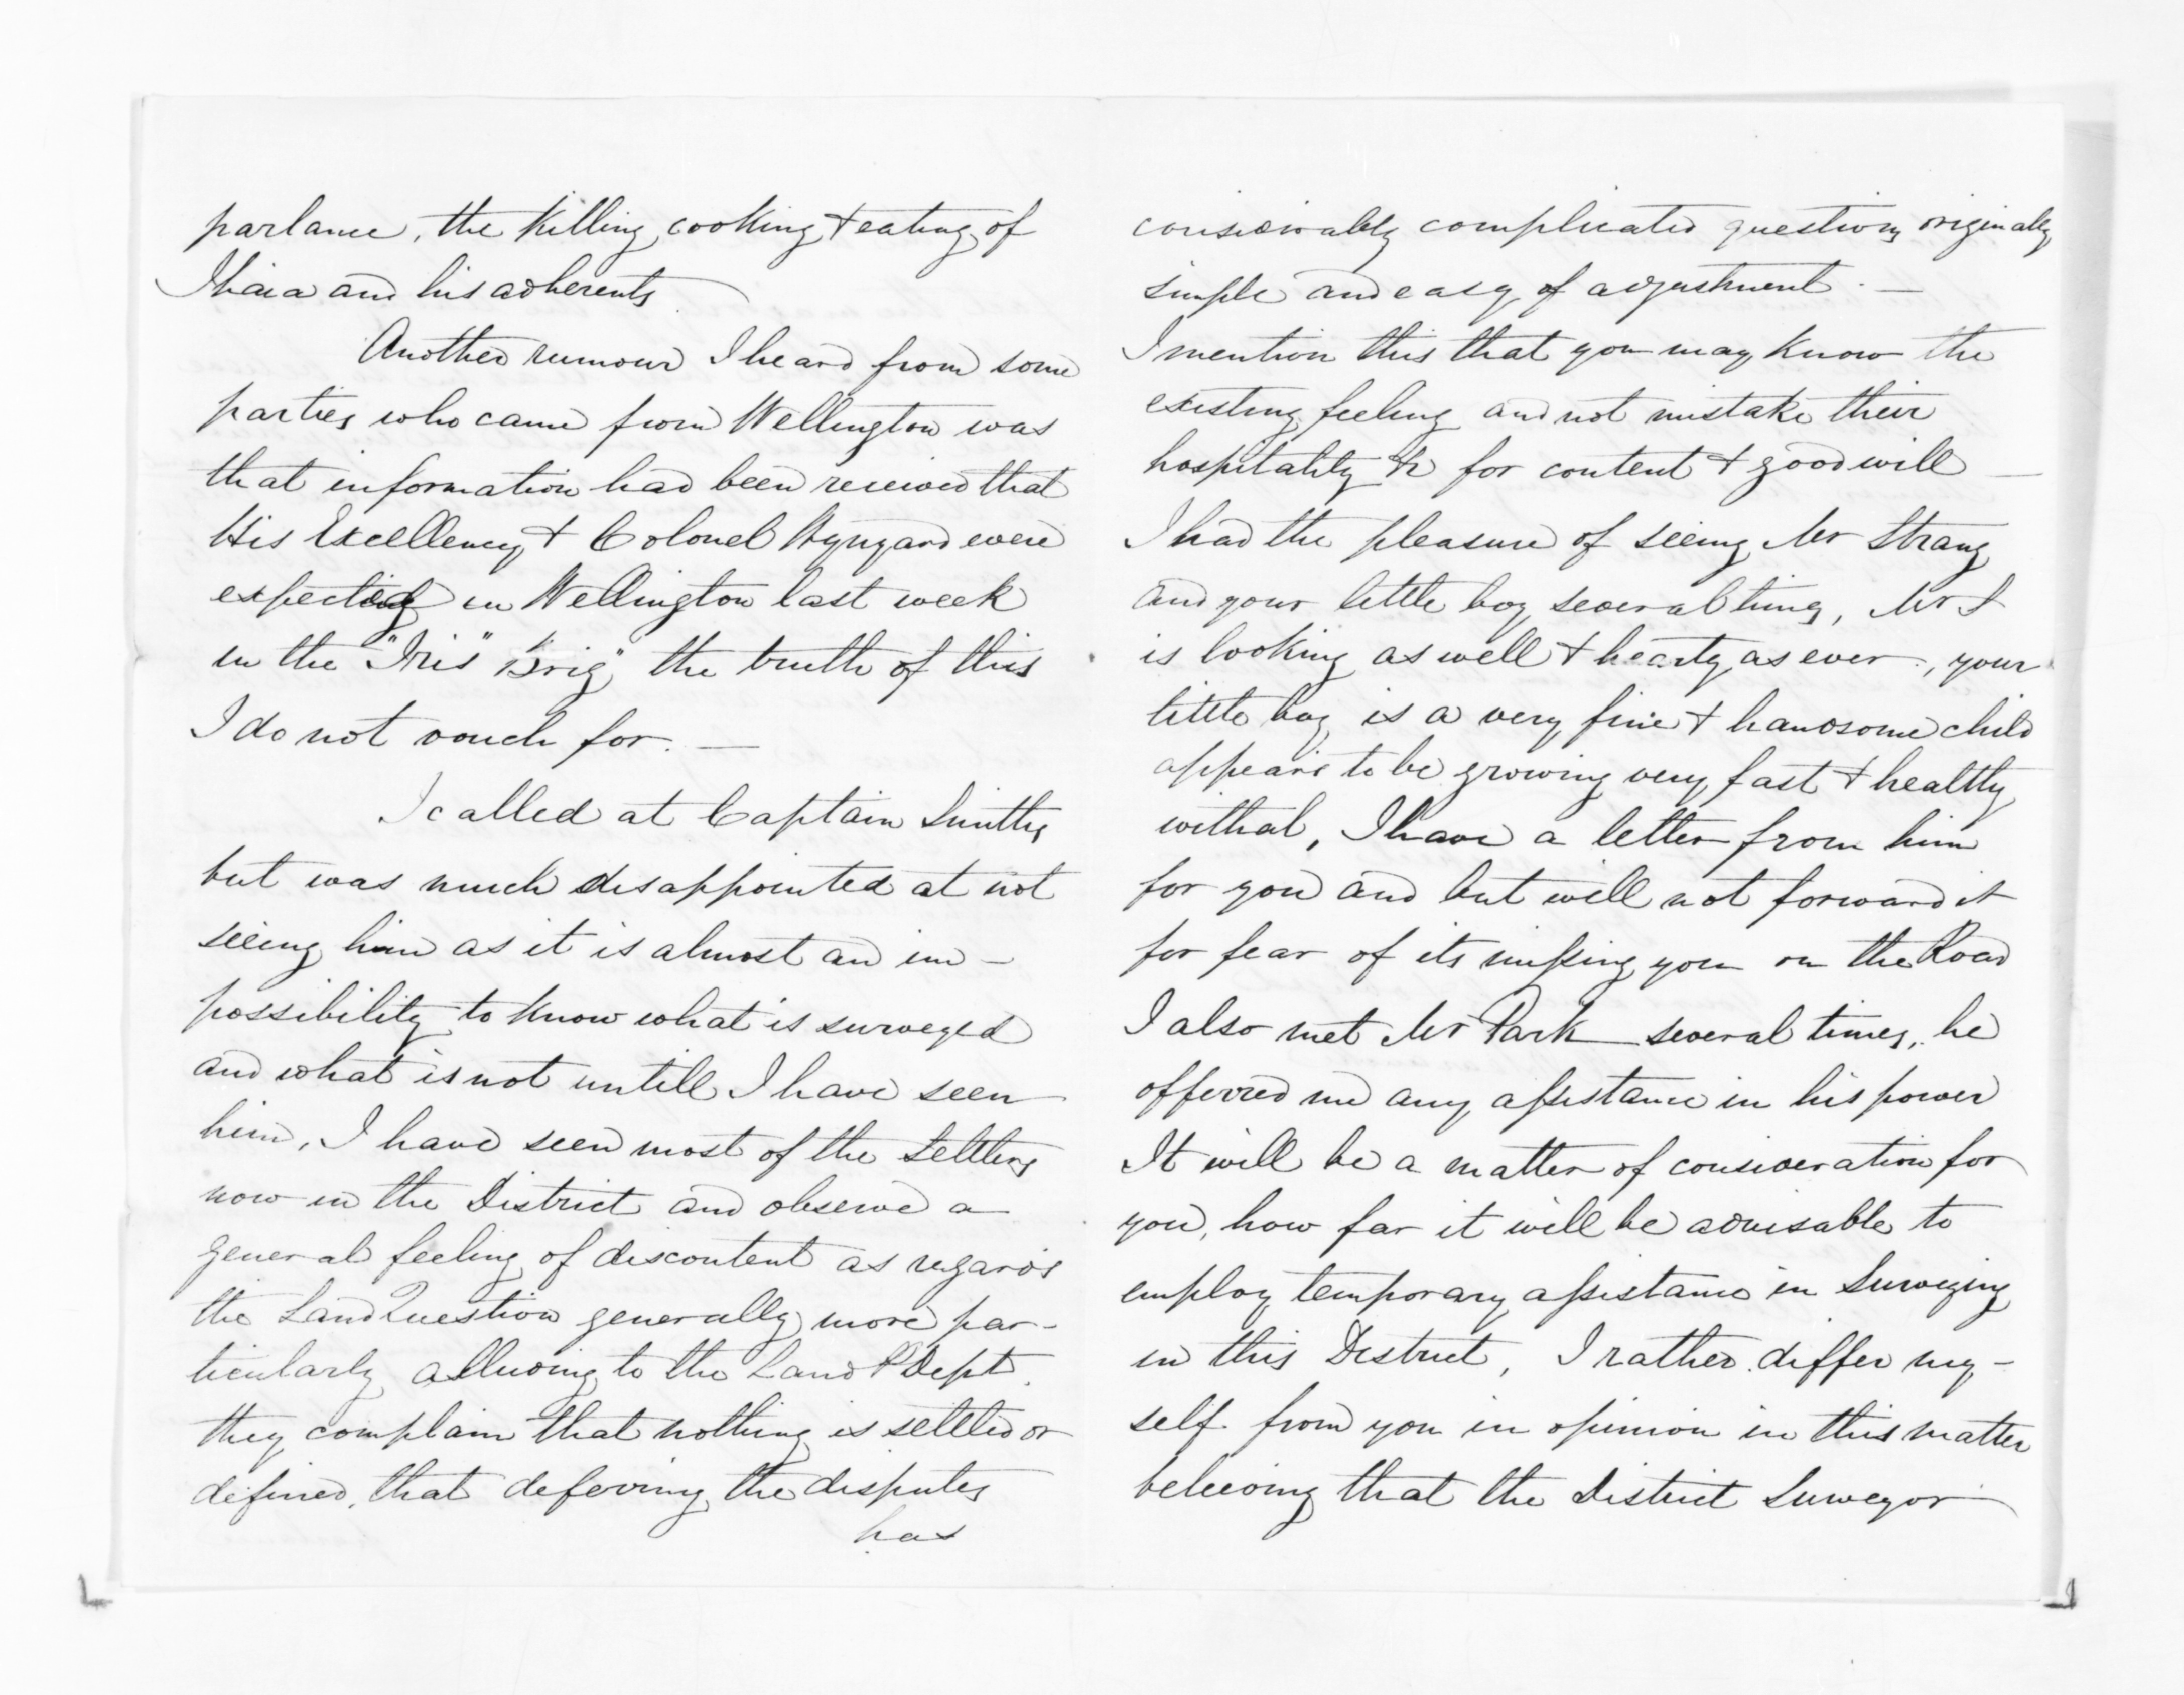 parlance, the killing, cooking & eating of
Ihaia and his adherents
Another rumour I heard from some
parties who came from Wellington was
that information had been received that
His Excellency & Colonel Wynyard were
expected in Wellington last week
in the "Iris" Brig" the truth of this
I do not vouch for. —
I called at Captain Smiths
but was much disappointed at not
seeing him as it is almost an im-
possibility to know what is surveyed
and what is not untill I have seen
him, I have seen most of the settlers
now in the District and observe a
general feeling of discontent as regards
the Land Question generally more par-
ticularly alluding to the Land P Dept.
they complain that nothing is settled or
defined, that defering the disputes
has
considerably complicated questions originally
simple and easy of adjustment. —
I mention this that you may know the
existing feeling and not mistake their
hospitality &c for content & good will —
I had the pleasure of seeing Mr Strang
and your little boy several times, Mr S
is looking as well & hearty as ever, your
little boy is a very fine & handsome child
appears to be growing very fast & healthy
withal, I have a letter from him
for you and but will not forward it
for fear of its missing you on the Road
I also met Mr Park several times, he
offerred me any assistance in his power
It will be a matter of consideration for
you, how far it will be advisable to
employ temporary assistance in Surveying
in this District, I rather differ my-
self from you in opinion in this matter
beleiving that the District Surveyor